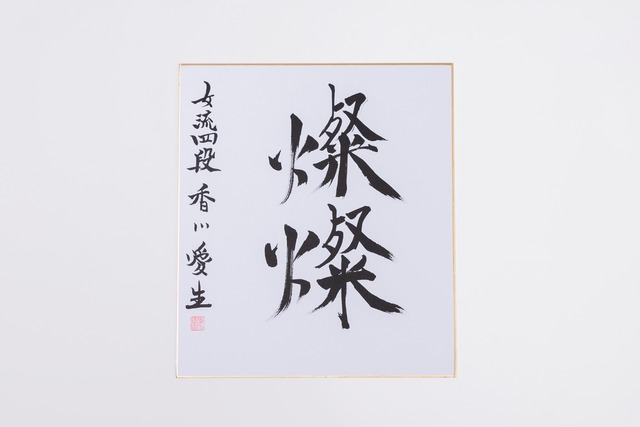 燦燦
女流四段 香川愛生